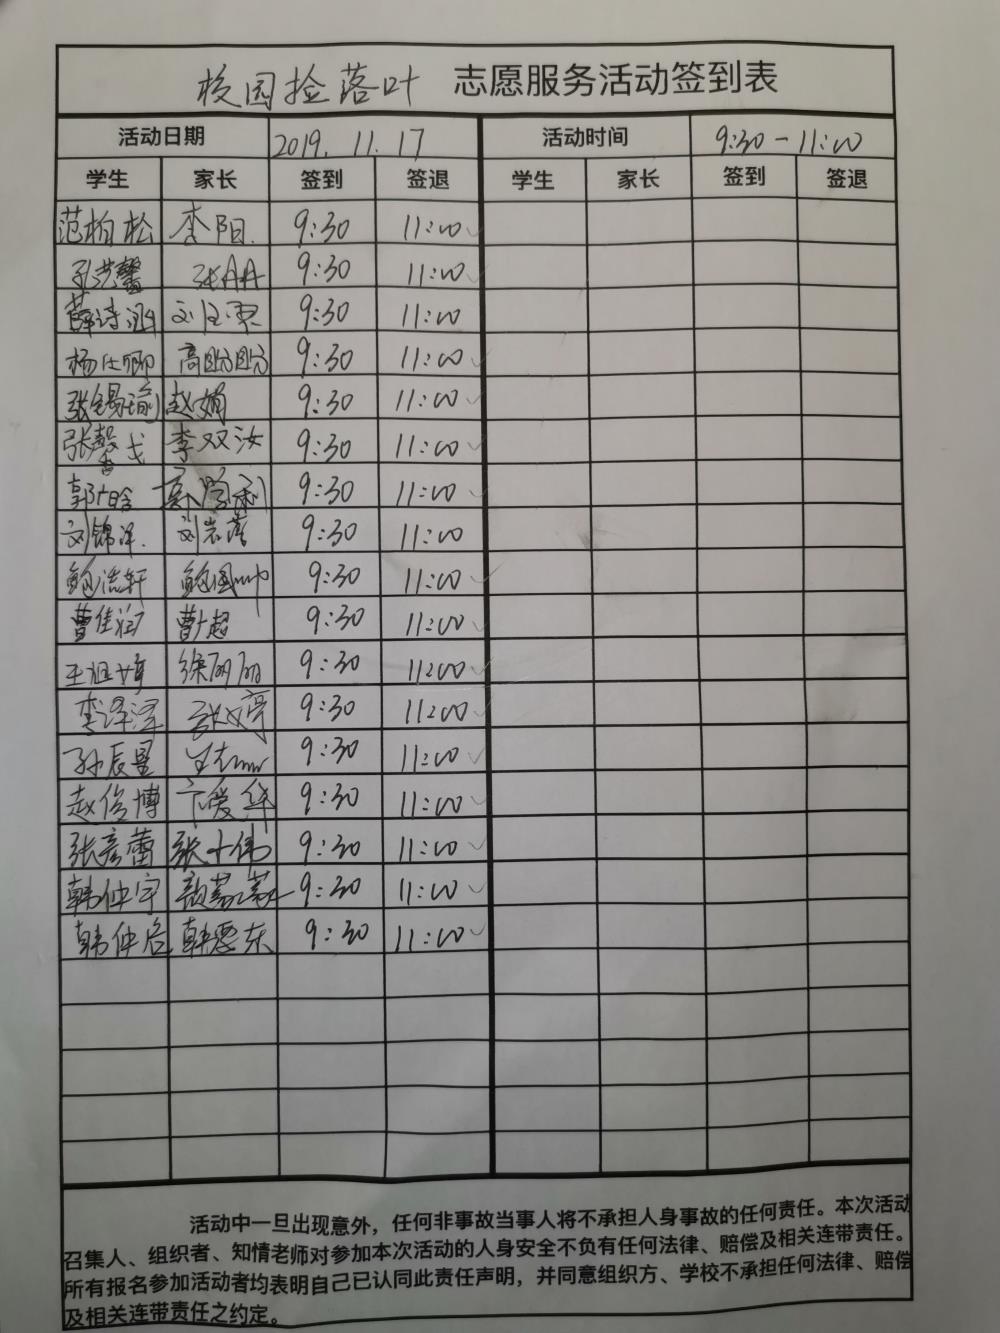 校园捡落叶 志愿服务活动签到表
活动日期 2019.11.17 活动时间 9:30-11:00
学生 家长 签到 签退 学生 家长 签到 签退
范柏松 李阳. 9:30 11:00
张丹丹 9:30 11:00
薛诗涵 9:30 11:00
杨仕卿 高盼盼 9:30 11:00
张锡瑜 赵娟 9:30 11:00
张馨戈 李双汝 9:30 11:00
9:30 11:00
刘锦泽. 9:30 11:00
9:30 11:00
曹佳润 曹超 9:30 11:00
徐丽丽 9:30 11:00
李泽泽 张文亭 9:30 11:00
孙辰昱 9:30 11:00
赵俊博 卞爱华 9:30 11:00
张彦蕾 张十伟 9:30 11:00
韩仲宇 9:30 11:00
韩仲启 9:30 11:00
活动中一旦出现意外，任何非事故当事人将不承担人身事故的任何责任。本次活动
召集人、组织者、知情老师对参加本次活动的人身安全不负有任何法律、赔偿及相关连带责任。
所有报名参加活动者均表明自己已认同此责任声明，并同意组织方、学校不承担任何法律、赔偿
及相关连带责任之约定。